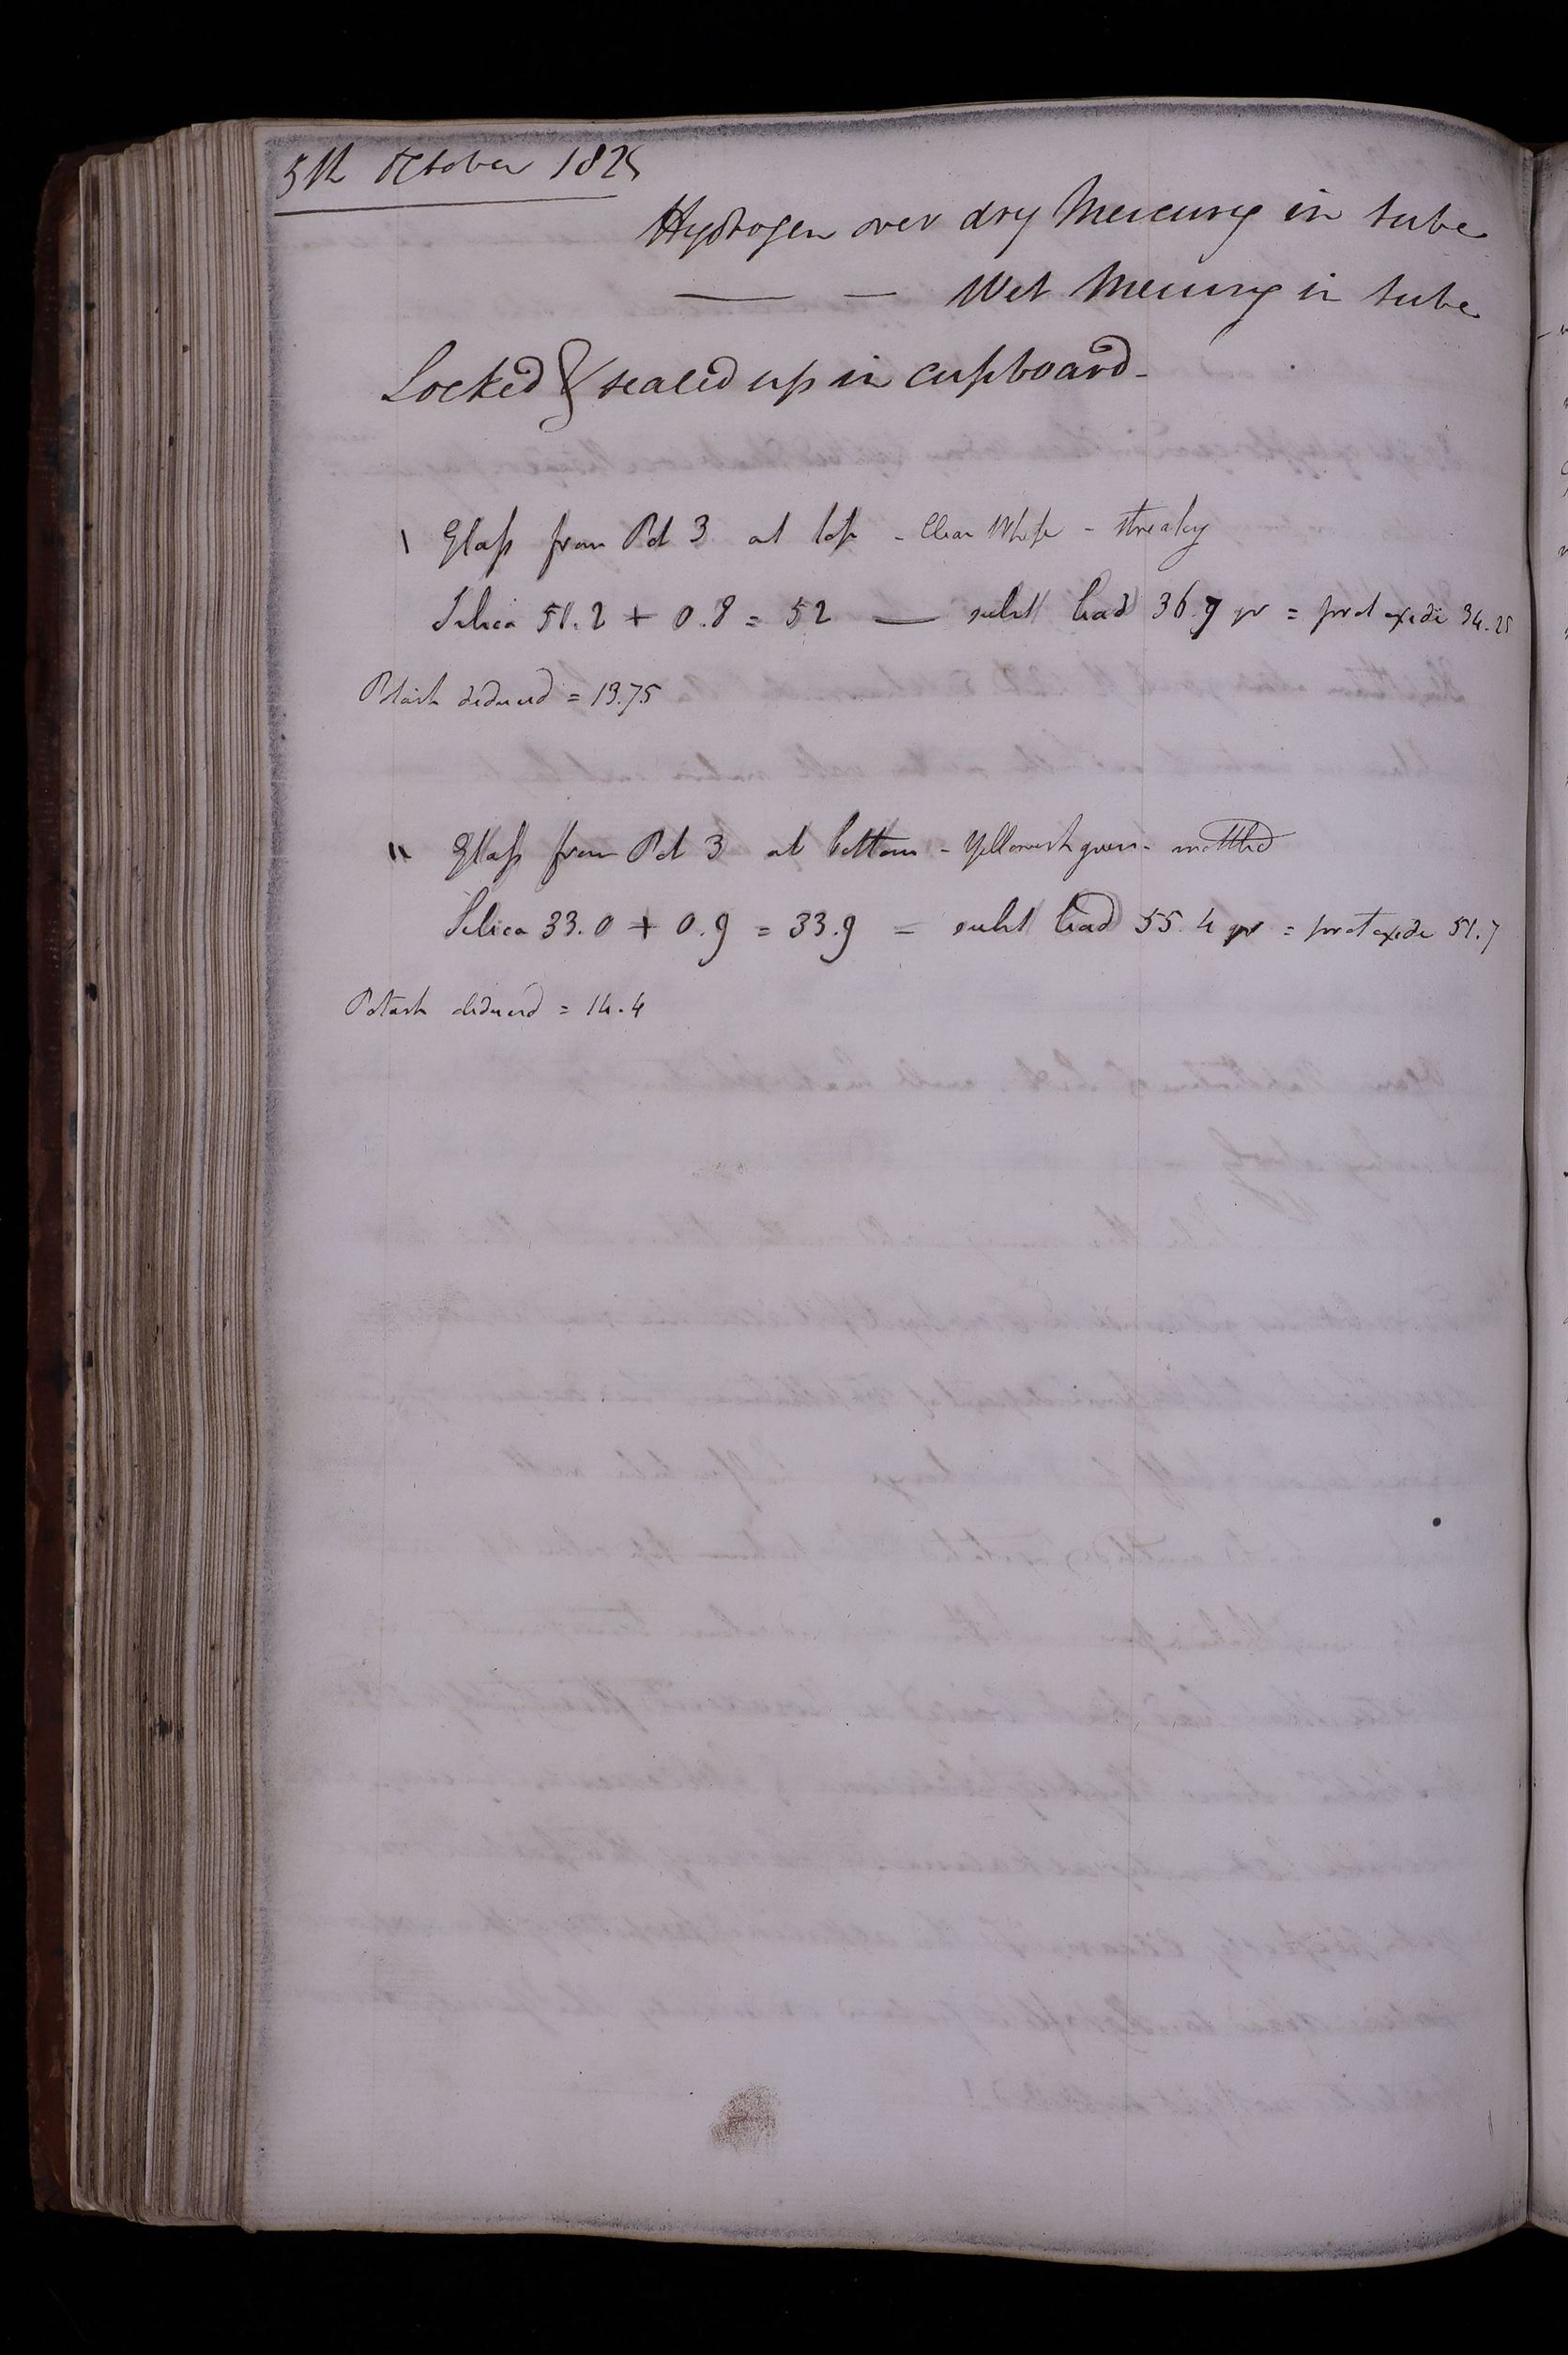 5th October 1825
Hydrogen over dry Mercury in tube
— — Wet Mercury in tube
Locked & sealed up in cupboard -
\ Glass from Pot 3 at top - Clear White - streaky
Silica 51.2 + 0.8 = 52 — sulst lead 36.7 gr = protoxide 34.25
Potash deduced = 13.75
\\ Glass from Pot 3 at bottom - Yellowish green - mottled
Silica 33.0 + 0.9 = 33.9 = sulst lead 55.4 gr = protoxide 51.7
Potash deduced = 14.4